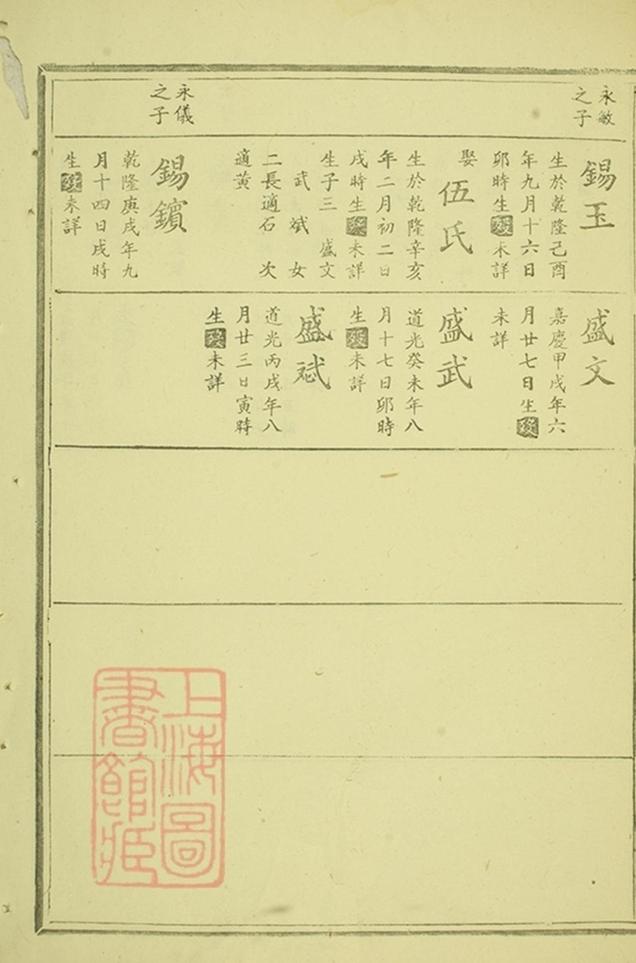 永敏
之子
永儀
之子
錫玉
生於乾隆己酉
年九月十六日
卯時生歿未詳
娶
伍氏
生於乾隆辛亥
年二月初二日
戌時生歿未詳
生子三 盛文
武 斌 女
二長適石 次
適黃
錫鑌
乾隆庚戌年九
月十四日戌時
生歿未詳
盛文
嘉慶甲戌年六
月廿七日生歿
未詳
盛武
道光癸未年八
月十七日卯時
生歿未詳
盛斌
道光丙戌年八
月廿三日寅時
生歿未詳
上海圖
書館藏